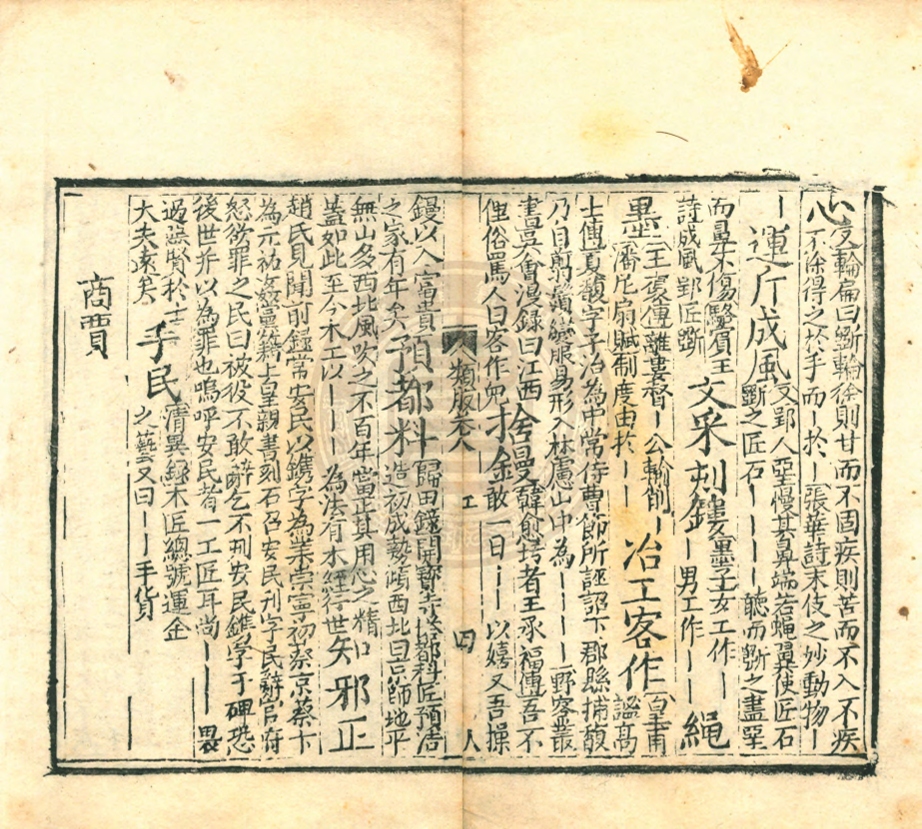 心
又輪扁曰斲輪徐則甘而不固疾則苦而不入不疾
不徐得之於手而丨於丨張華詩末伎之妙動物丨
丨運斤成風
又郢人堊慢其鼻端若蠅翼使匠石
斲之匠石丨丨丨丨聽而斲之盡堊
而鼻不傷駱賓王
詩成風郢匠斲
文采刻鏤
墨子女工作丨丨
丨男工作丨丨
繩
墨
二王褒傳離婁督丨公輸削丨
潘尼扇賦制度由於丨丨
冶工客作
二皇甫
謐高
士傳夏馥字子治為中常侍曹節所誣詔下郡縣捕馥
乃自翦鬚變服易形入林慮山中為丨丨丨野客叢
書吳曾漫録曰江西
俚俗罵人曰客作兒
捨鏝
韓愈圬者王承福傳吾不
敢一日丨丨以嬉又吾操
類腋卷八 工 四 人
鏝以入富貴
之家有年矣
預都料
歸田録開寳寺塔都料匠預浩
造初成勢傾西北曰京師地平
無山多西北風吹之不百年當正其用心之精
蓋如此至今木工以丨丨丨為法有木經行世
知邪正
趙氏見聞前録常安民以鐫字為業崇寧初蔡京蔡卞
為元祐姦黨籍上皇親書刻石召安民刊字民辭官府
怒欲罪之民曰被役不敢辭乞不刊安民鐫字于碑恐
後世并以為罪也嗚呼安民者一工匠耳尚丨丨丨畏
過誤賢於士
大夫遠矣
手民
清異録木匠總號運金
之藝又曰丨丨手貨
商賈